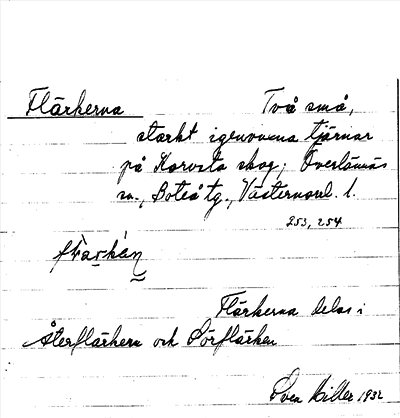 Flärkerna Två små,
starkt igenvuxna tjärnar
på Korsta skog; Överlännäs
sn., Boteå tg., Västernorrl. l.
253, 254
Flärkerna delas i
Återflärken och Sörflärken
Sven Hiller 1932